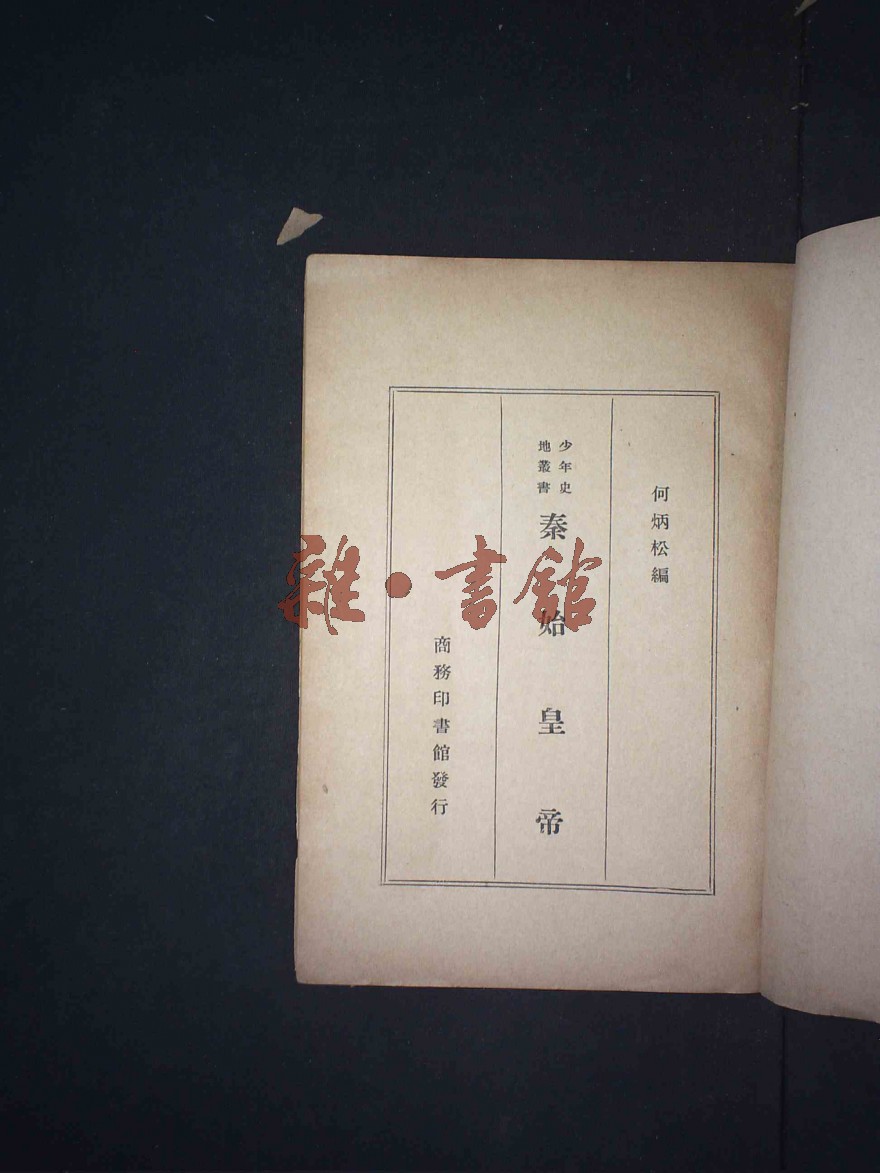 何炳松編
少年史
地叢書
秦始皇帝
商務印書館發行
雜·書館